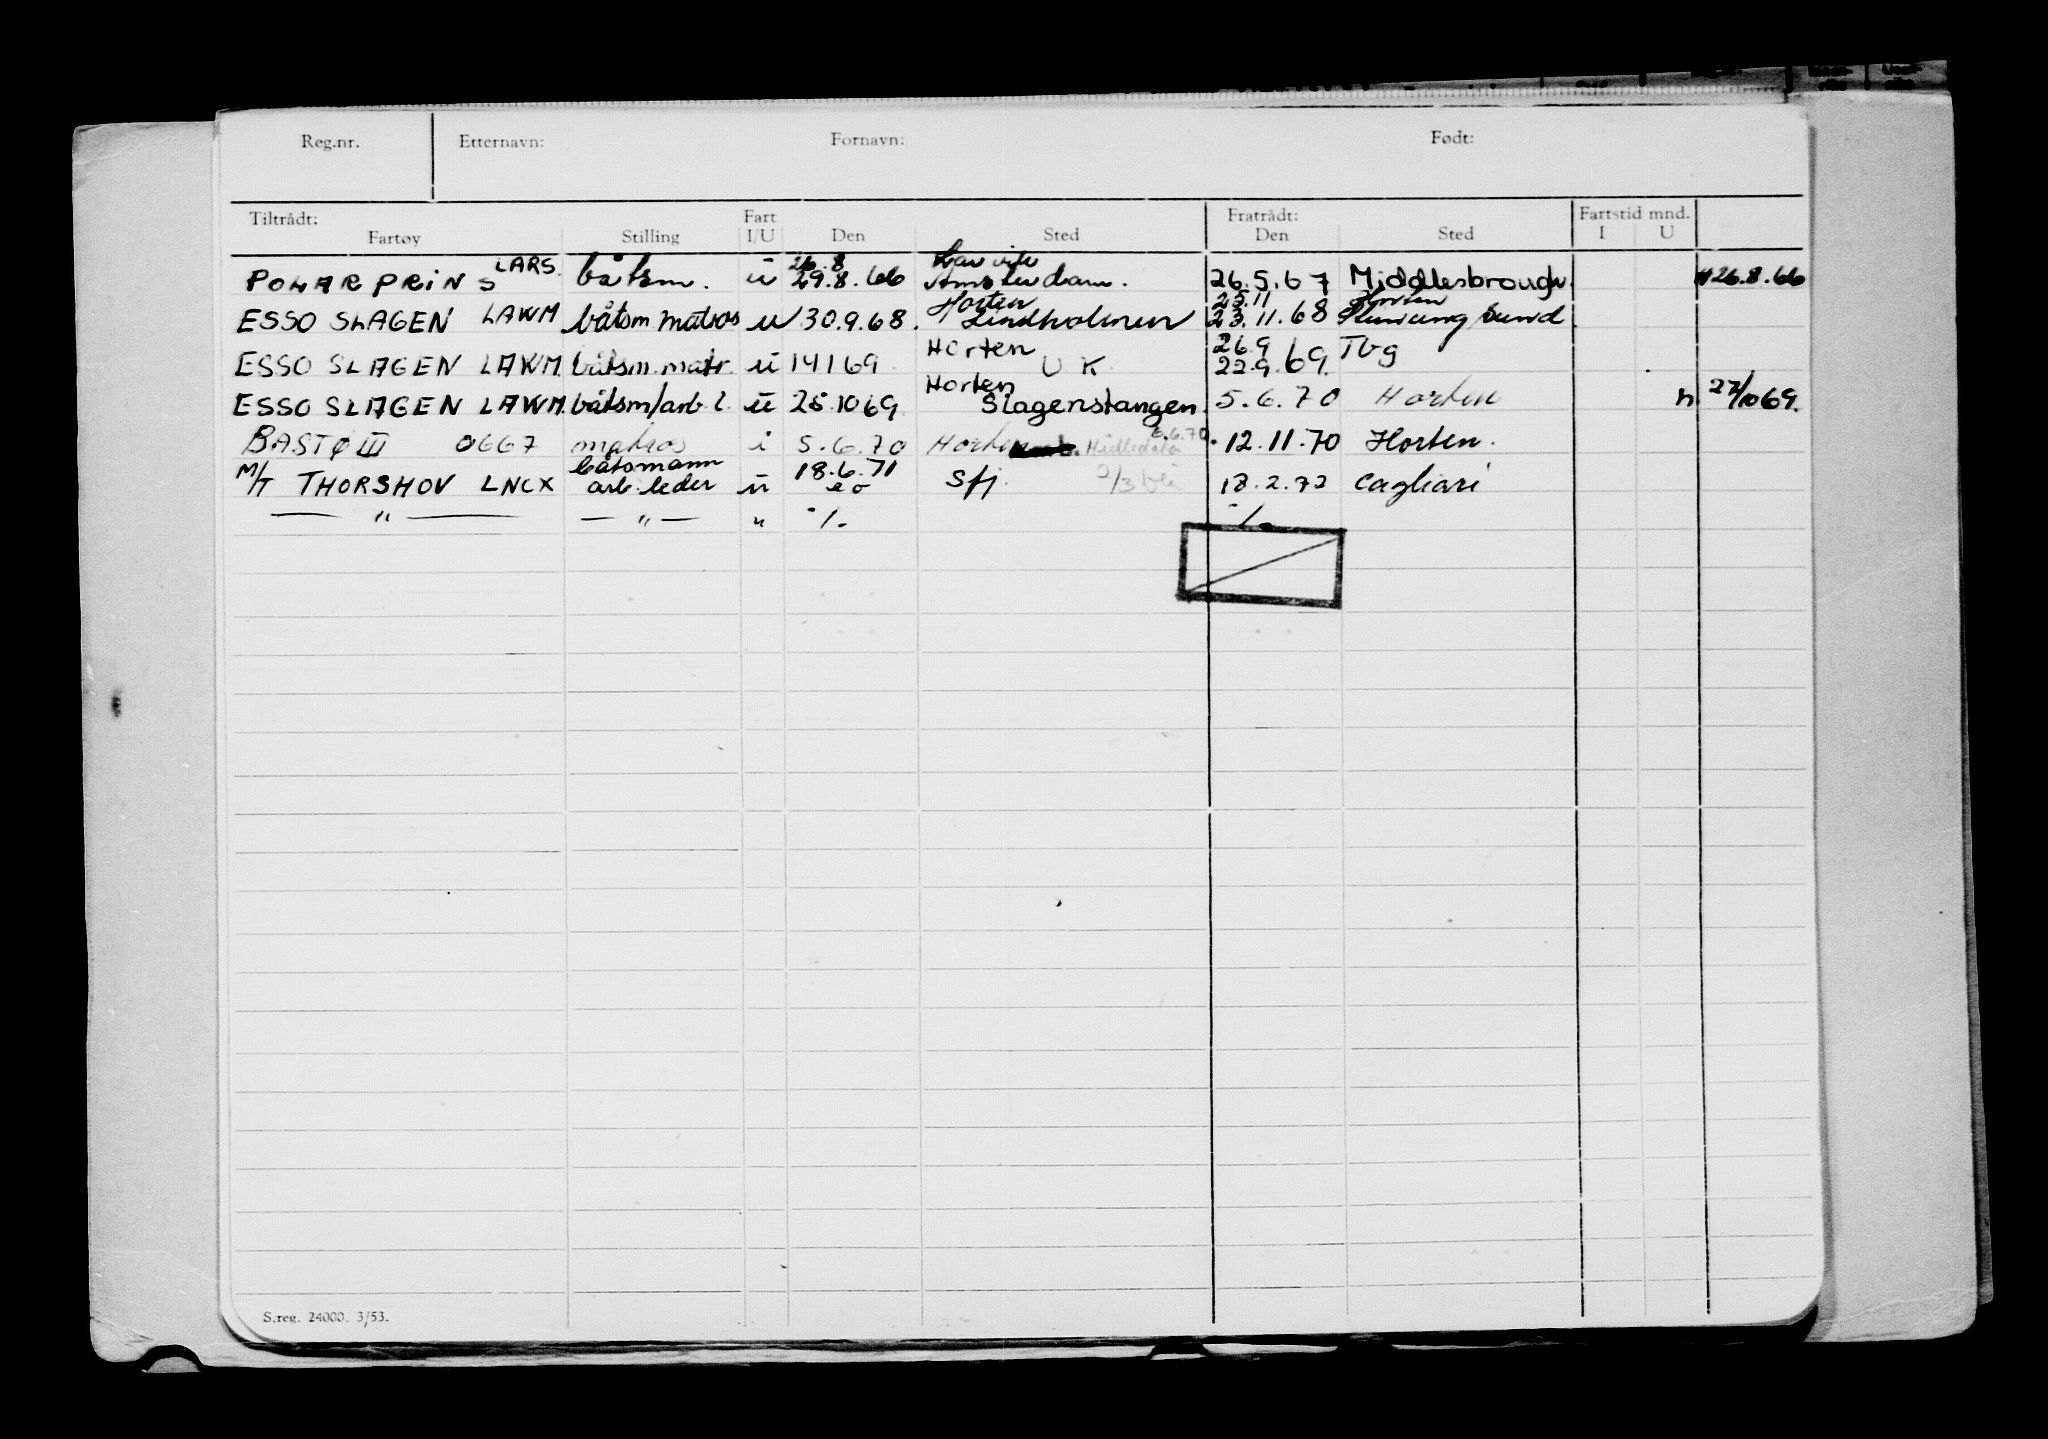 Reg.nr. Etternavn: Fornavn: Født:
Tiltrådt: Fart Fratrådt: Fartstid mnd.
Fartøy Stilling I/U Den Sted Den Sted I U
LARS. 26.8 Larvik
POLARPRINS båtsm. u 29.8.66 Amsterdam. 26.5.67 Middlesbrough 26.8.66
Horten 25.11 Horten
ESSO SLAGEN LAWM båtsm matros u 30.9.68. Lindholmen 23.11.68 Sund
Horten 26.9
ESSO SLAGEN LAWM båtsm. matr. u 14169 U K 22.9.69. Tbg
Horten
ESSO SLAGEN LAWM båtsm/arb l. u 25.1069 Slagenstangen. 5.6.70 Horten n 27/1069.
6.6.70
BASTØ III 0667 matros i 5.6.70 Horten 12.11.70 Horten.
båtsmann 18.6.71
M/T THORSHOV LNCX arb. leder u e o Sfj 2/3 18.2.72 Cagliari
— " — — " — " ·/. ·/.
S.reg. 24000. 3/53.